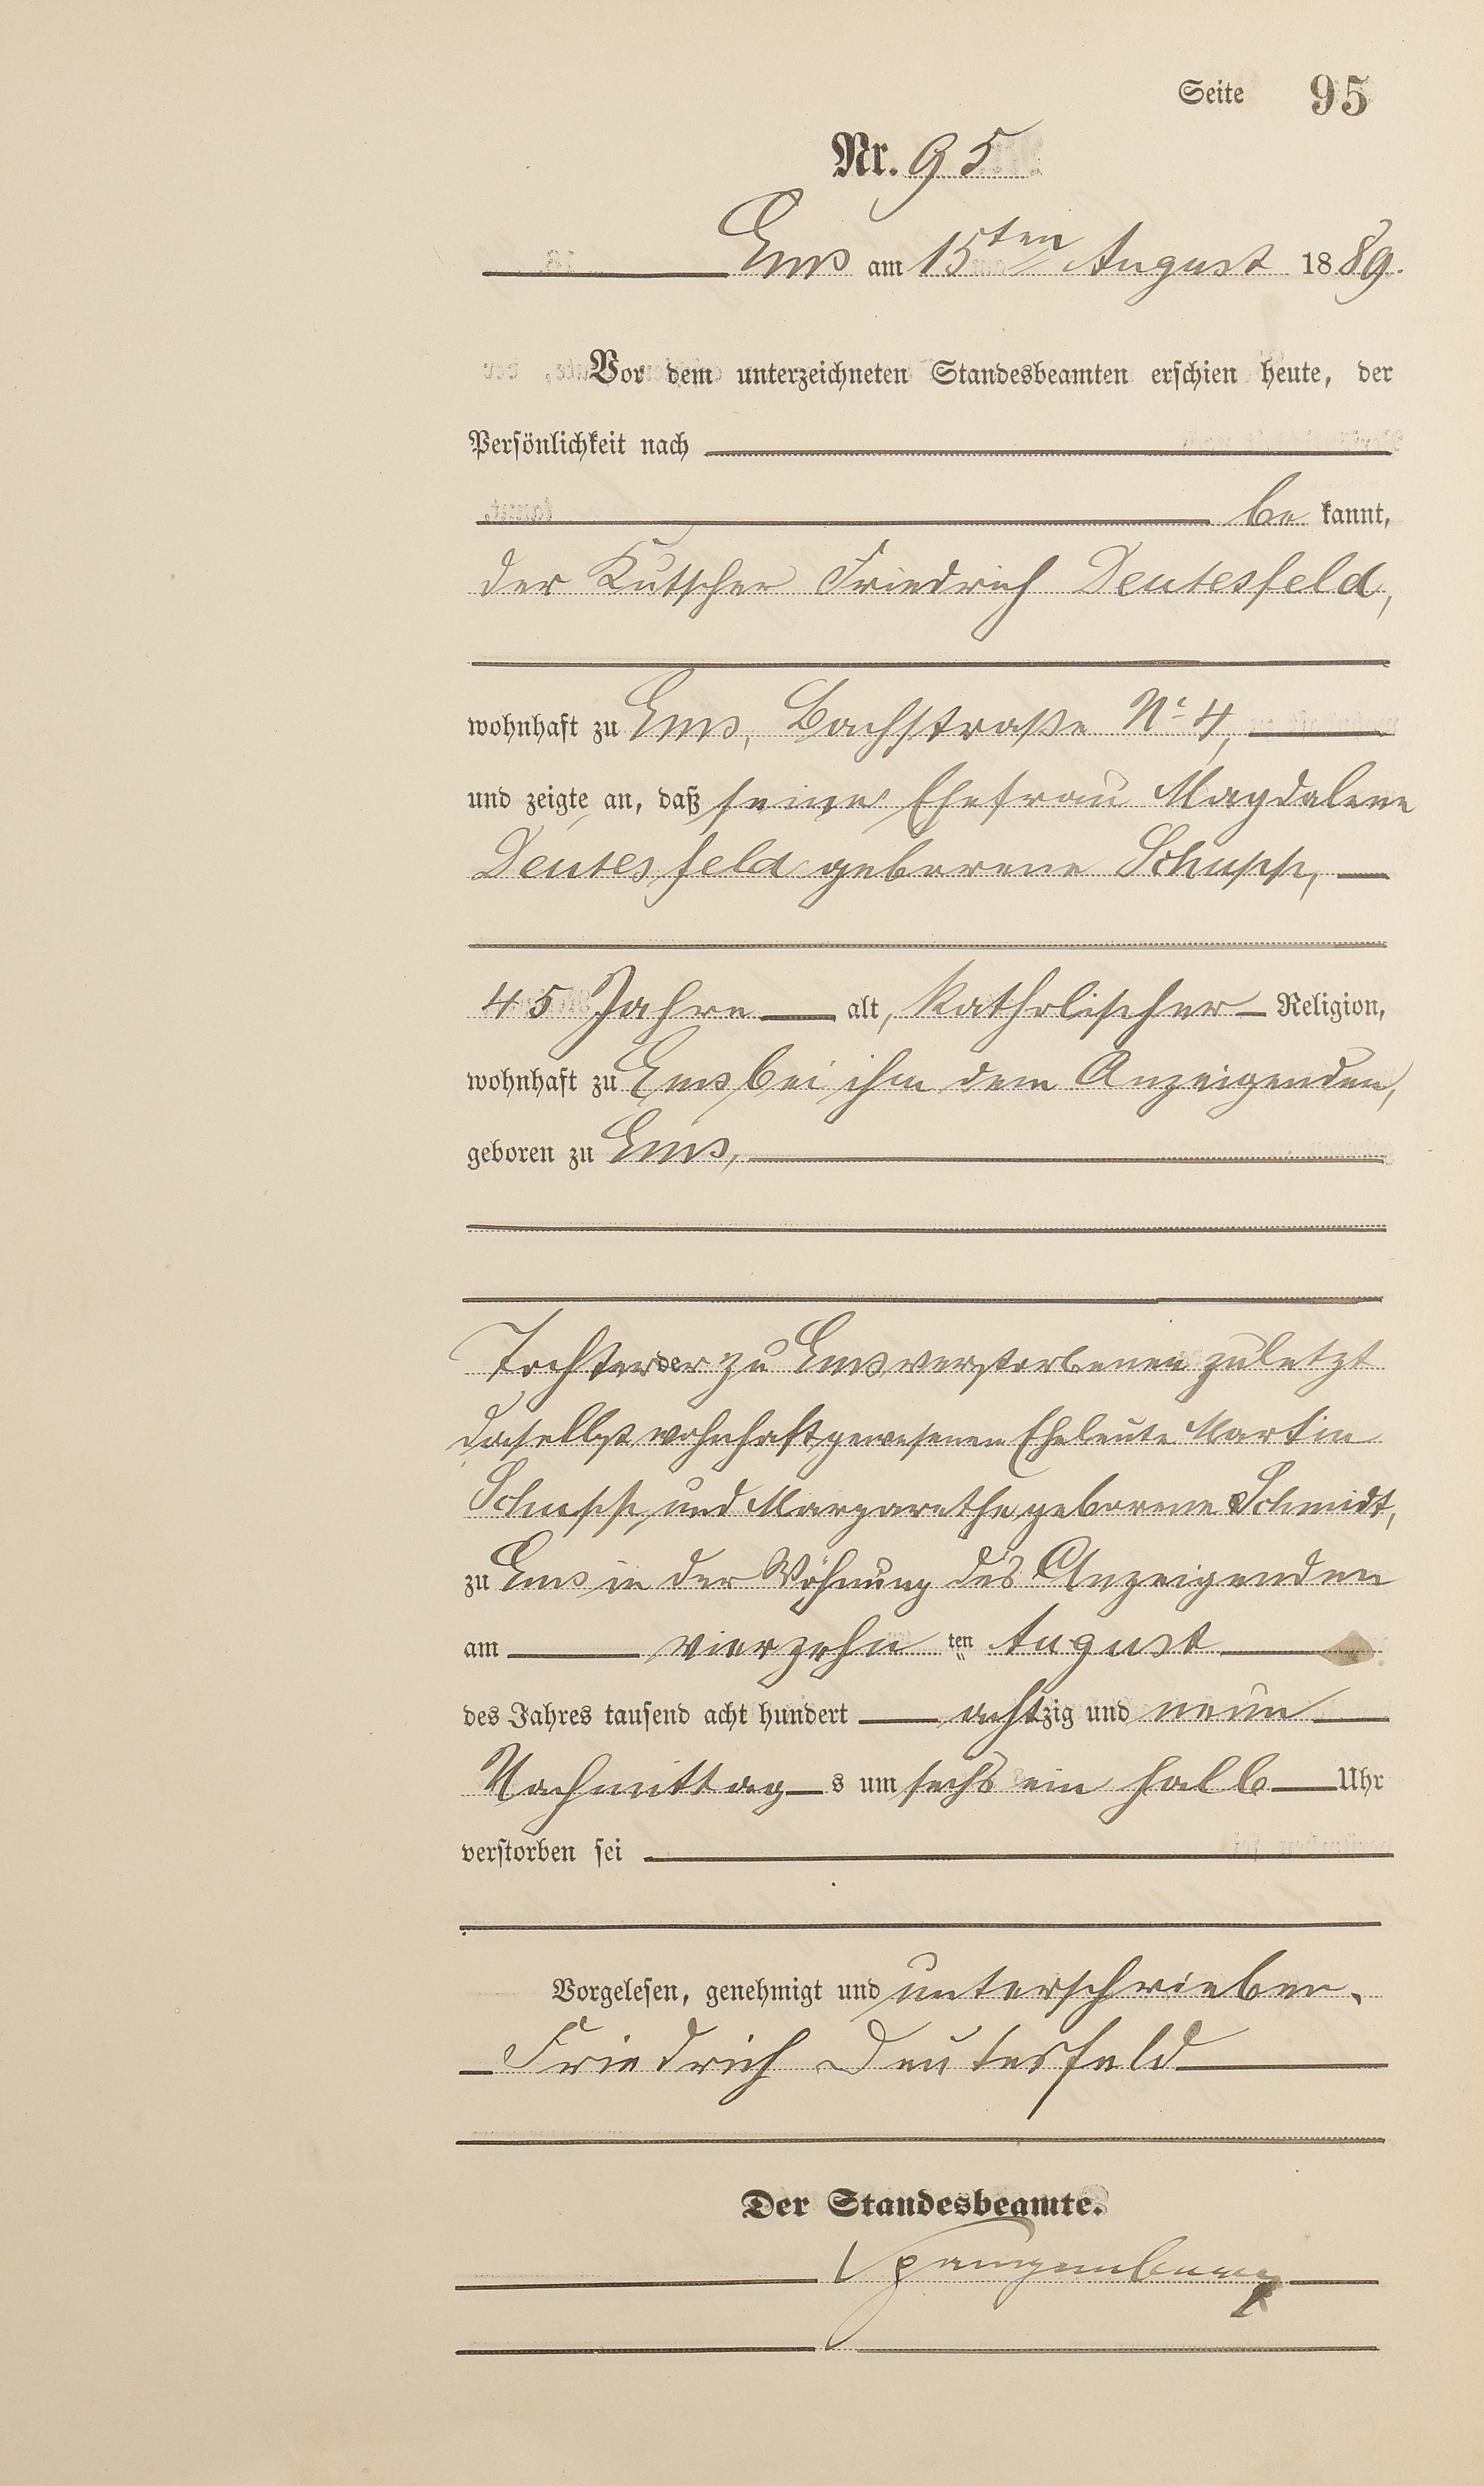 Seite 95
Nr. 95
Ems am 15ten August 1889.
Vor dem unterzeichneten Standesbeamten erschien heute, der
Persönlichkeit nach
be kannt,
der Kutscher Friedrich Deutesfeld,
wohnhaft zu Ems, Bachstraße No 4,
und zeigte an, daß seine Ehefrau Magdalene
Deutesfeld geborene Schupp,
45 Jahre alt, katholischer Religion,
wohnhaft zu Ems bei ihm dem Anzeigenden,
geboren zu Ems,
Tochter der zu Ems verstorbenen zuletzt
daselbst wohnhaft gewesenen Eheleute Martin
Schupp und Margarethe geborene Schmidt,
zu Ems in der Wohnung des Anzeigenden
am vierzehn ten August
des Jahres tausend acht hundert achtzig und neun
Nachmittag s um sechs ein halb Uhr
verstorben sei
Vorgelesen, genehmigt und unterschrieben.
Friedrich Deutesfeld
Der Standesbeamte.
Spangenberg